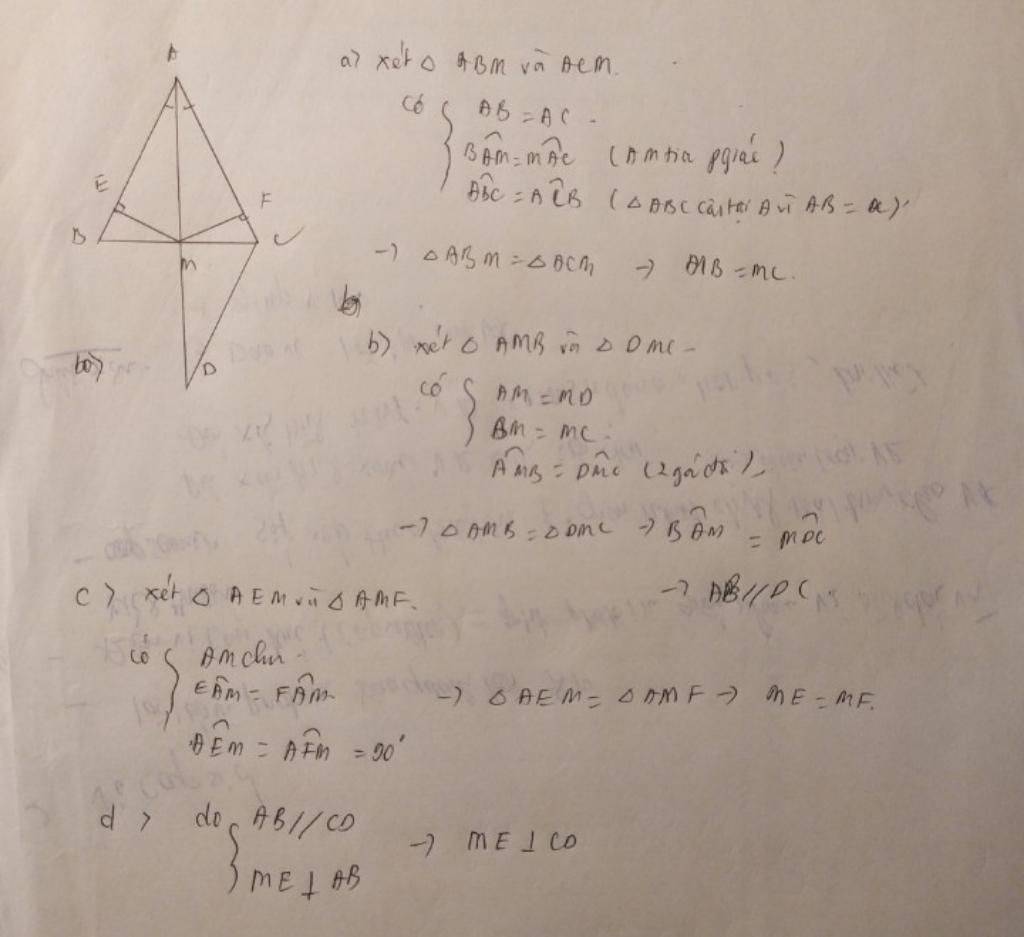 A
E
F
B
C
M
D
a) xét △ ABM và ACM.
có { AB = AC
BÂM = MÂC (AM tia pgiác)
AB̂C = AĈB (△ ABC cân tại A vì AB = AC)
→ △ ABM = △ ACM → MB = MC.
b) xét △ AMB và △ DMC
có { AM = MD
BM = MC
AM̂B = DM̂C (2 góc đđ)
→ △ AMB = △ DMC → BÂM = MD̂C
→ AB // DC
c) xét △ AEM và △ AMF.
có { AM chu
EÂM = FÂM → △ AEM = △ AMF → ME = MF.
AÊM = AF̂M = 90°
d) do { AB // CD
ME ⊥ AB
→ ME ⊥ CD